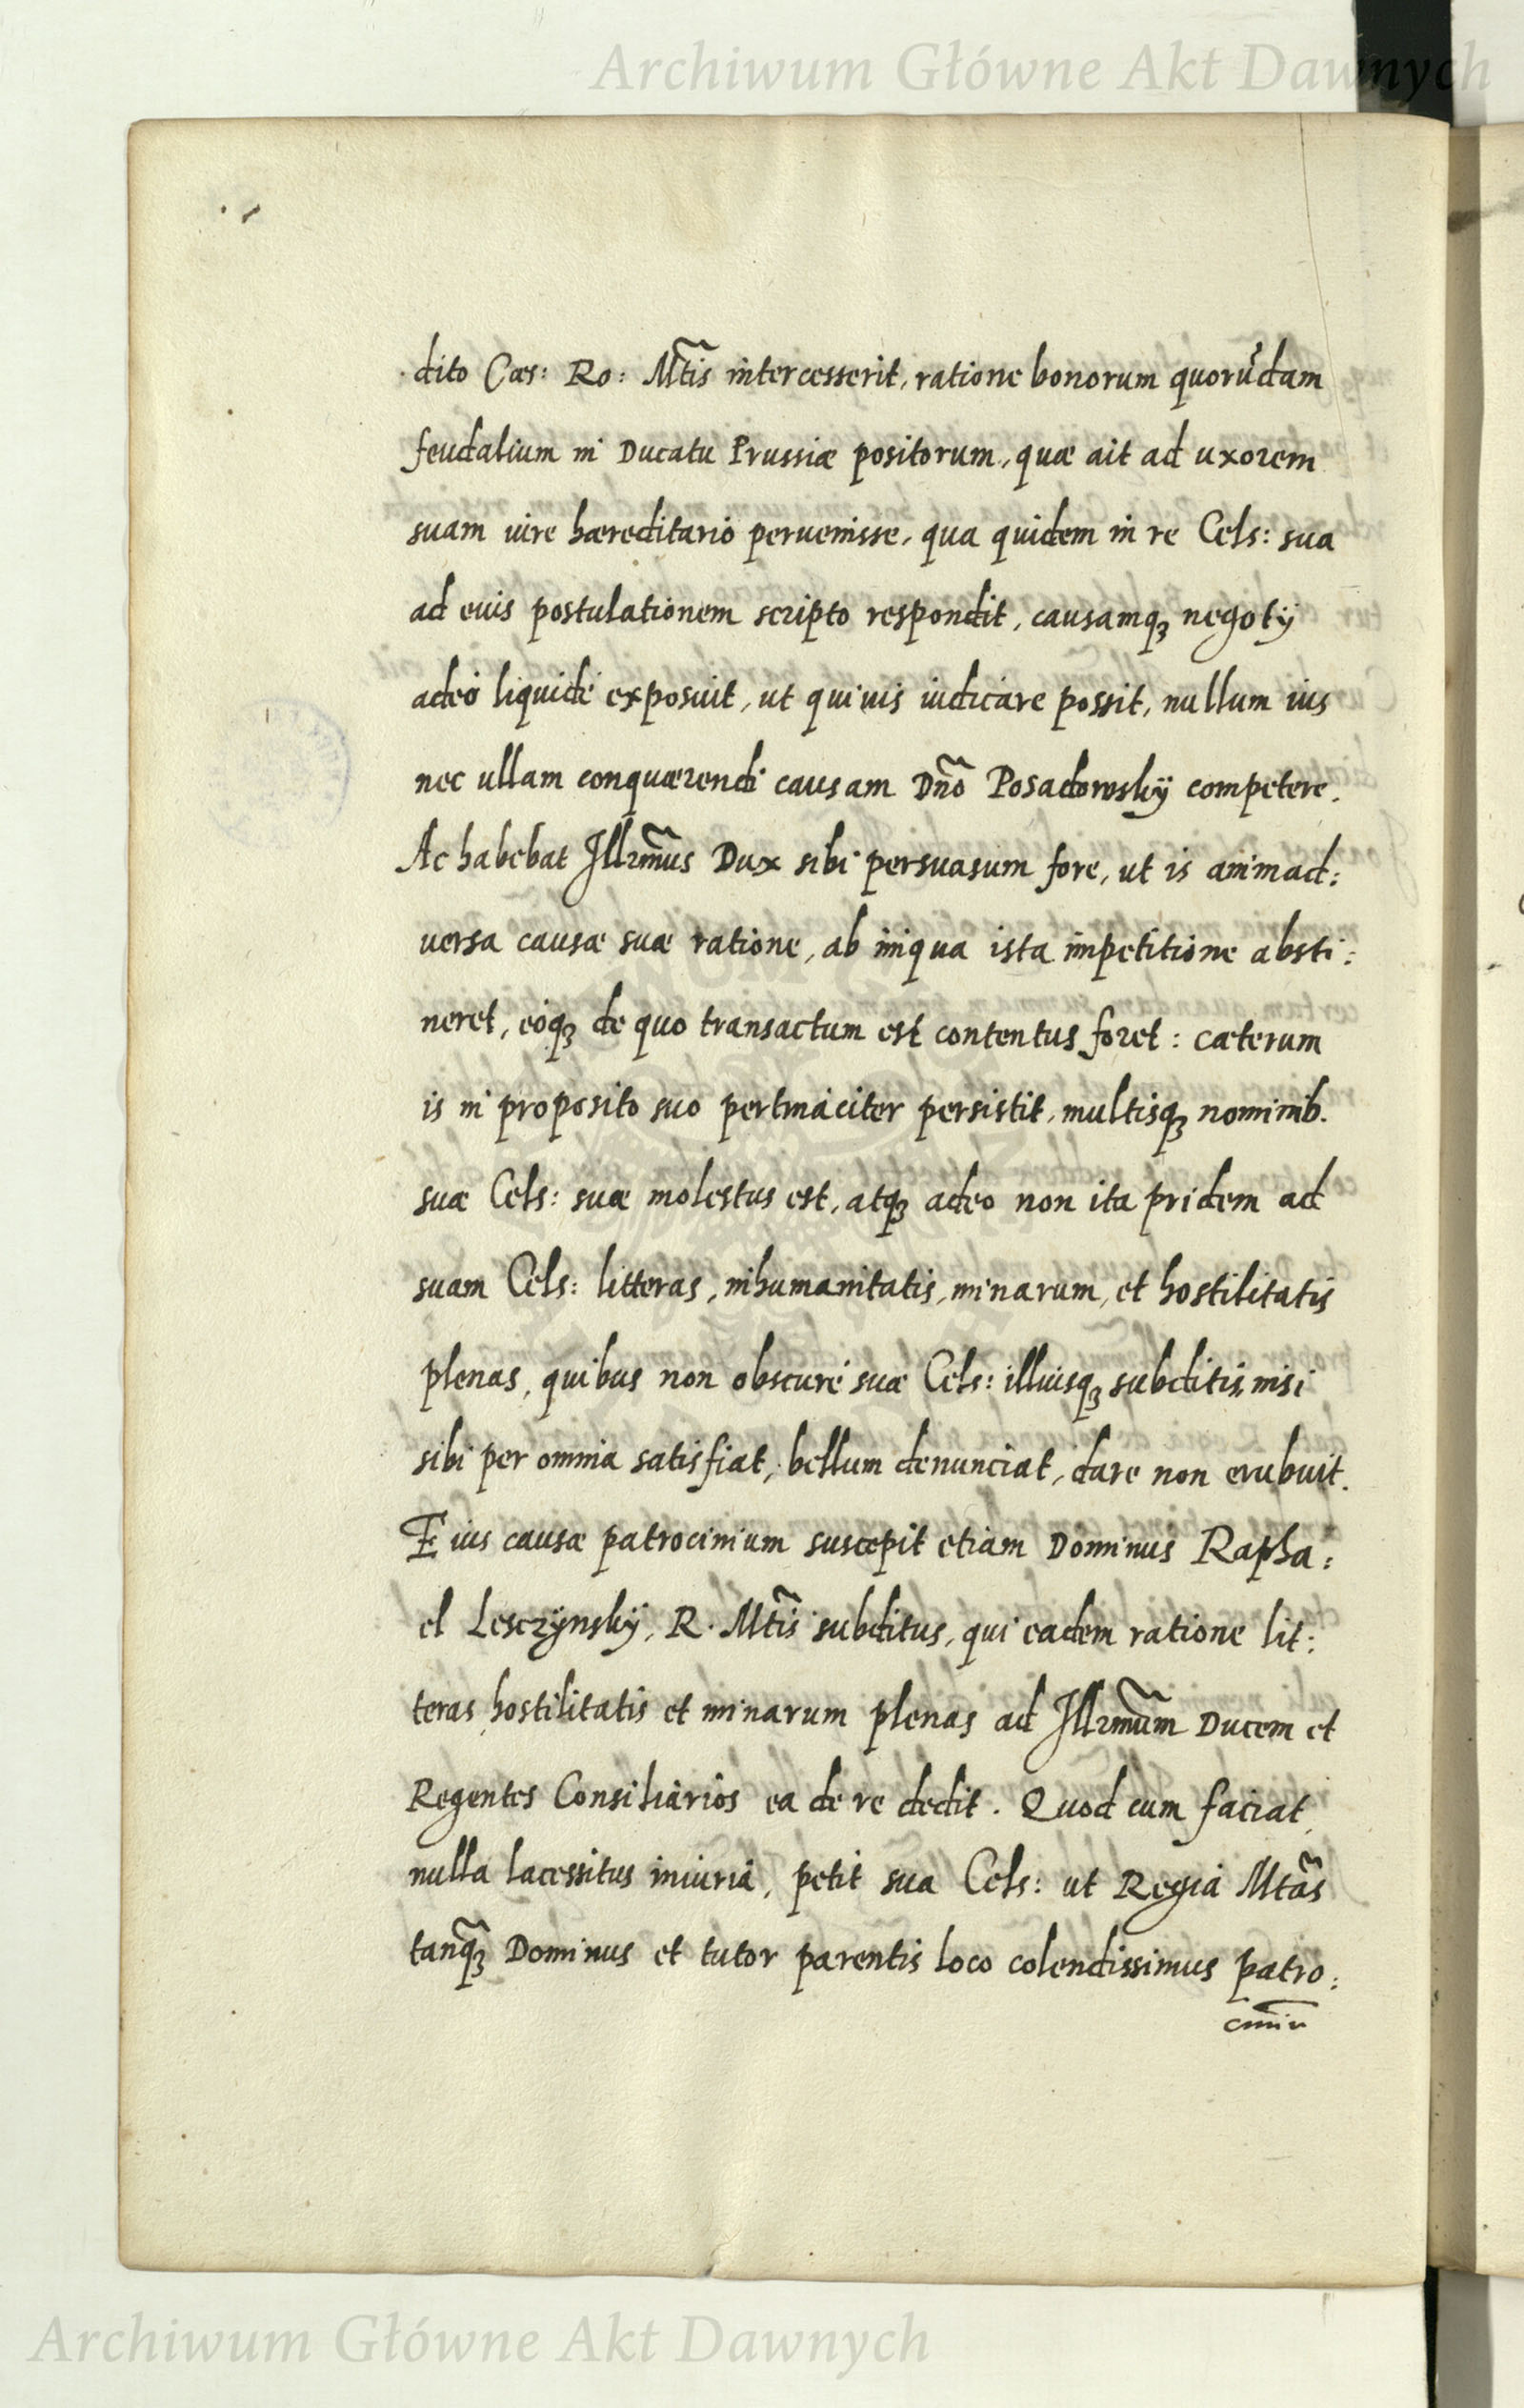 Archiwum Główne Akt Dawnych
dito Cæs: Ro: Mtis intercesserit, ratione bonorum quorūdam
feudalium in Ducatu Prussiæ positorum, quæ ait ad uxorem
suam iure hæreditario peruenisse, qua quidem in re Cels: sua
ad euis postulationem scripto respondit, causamqꝫ negotij
adeò liquidè exposuit, ut quiuis iudicare possit, nullum ius
nec ullam conquærendi causam Dño Posadowskÿ competere.
Ac habebat Illrm̃us Dux sibi persuasum fore, ut is animad:
uersa causæ suæ ratione, ab iniqua ista impetitione absti:
neret, eóqꝫ de quo transactum est contentus foret: cæterum
is in proposito suo pertináciter persistit, multisqꝫ nominib.
suæ Cels: suæ molestus est, atqꝫ adeo non ita pridem ad
suam Cels: litteras, inhumanitatis, minarum, et hostilitatis
plenas, quibus non obscurè suæ Cels: illiusqꝫ subditis, nisi
sibi per omnia satisfiat, bellum denunciat, dare non erubuit.
Eius causæ patrocinium suscepit etiam Dominus Rapha:
el Lesczÿnskÿ, R. Mtis subditus, qui eadem ratione lit:
teras hostilitatis et minarum plenas ad Illrm̃um Ducem et
Regentes Consiliários ea de re dedit. Quod cum faciat
nulla lacessitus iniuria, petit sua Cels: ut Regia Mtas
tanq̃ꝫ Dominus et tutor parentis loco colendissimus patro:
ciniū
Archiwum Główne Akt Dawnych